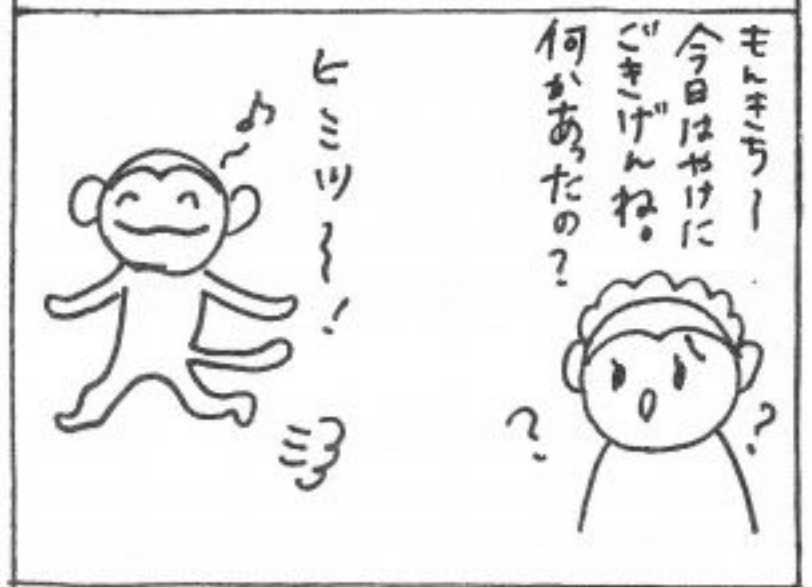 もんきち～
今日はやけに
ごきげんね。
何かあったの？
ヒミツ～！
？
？